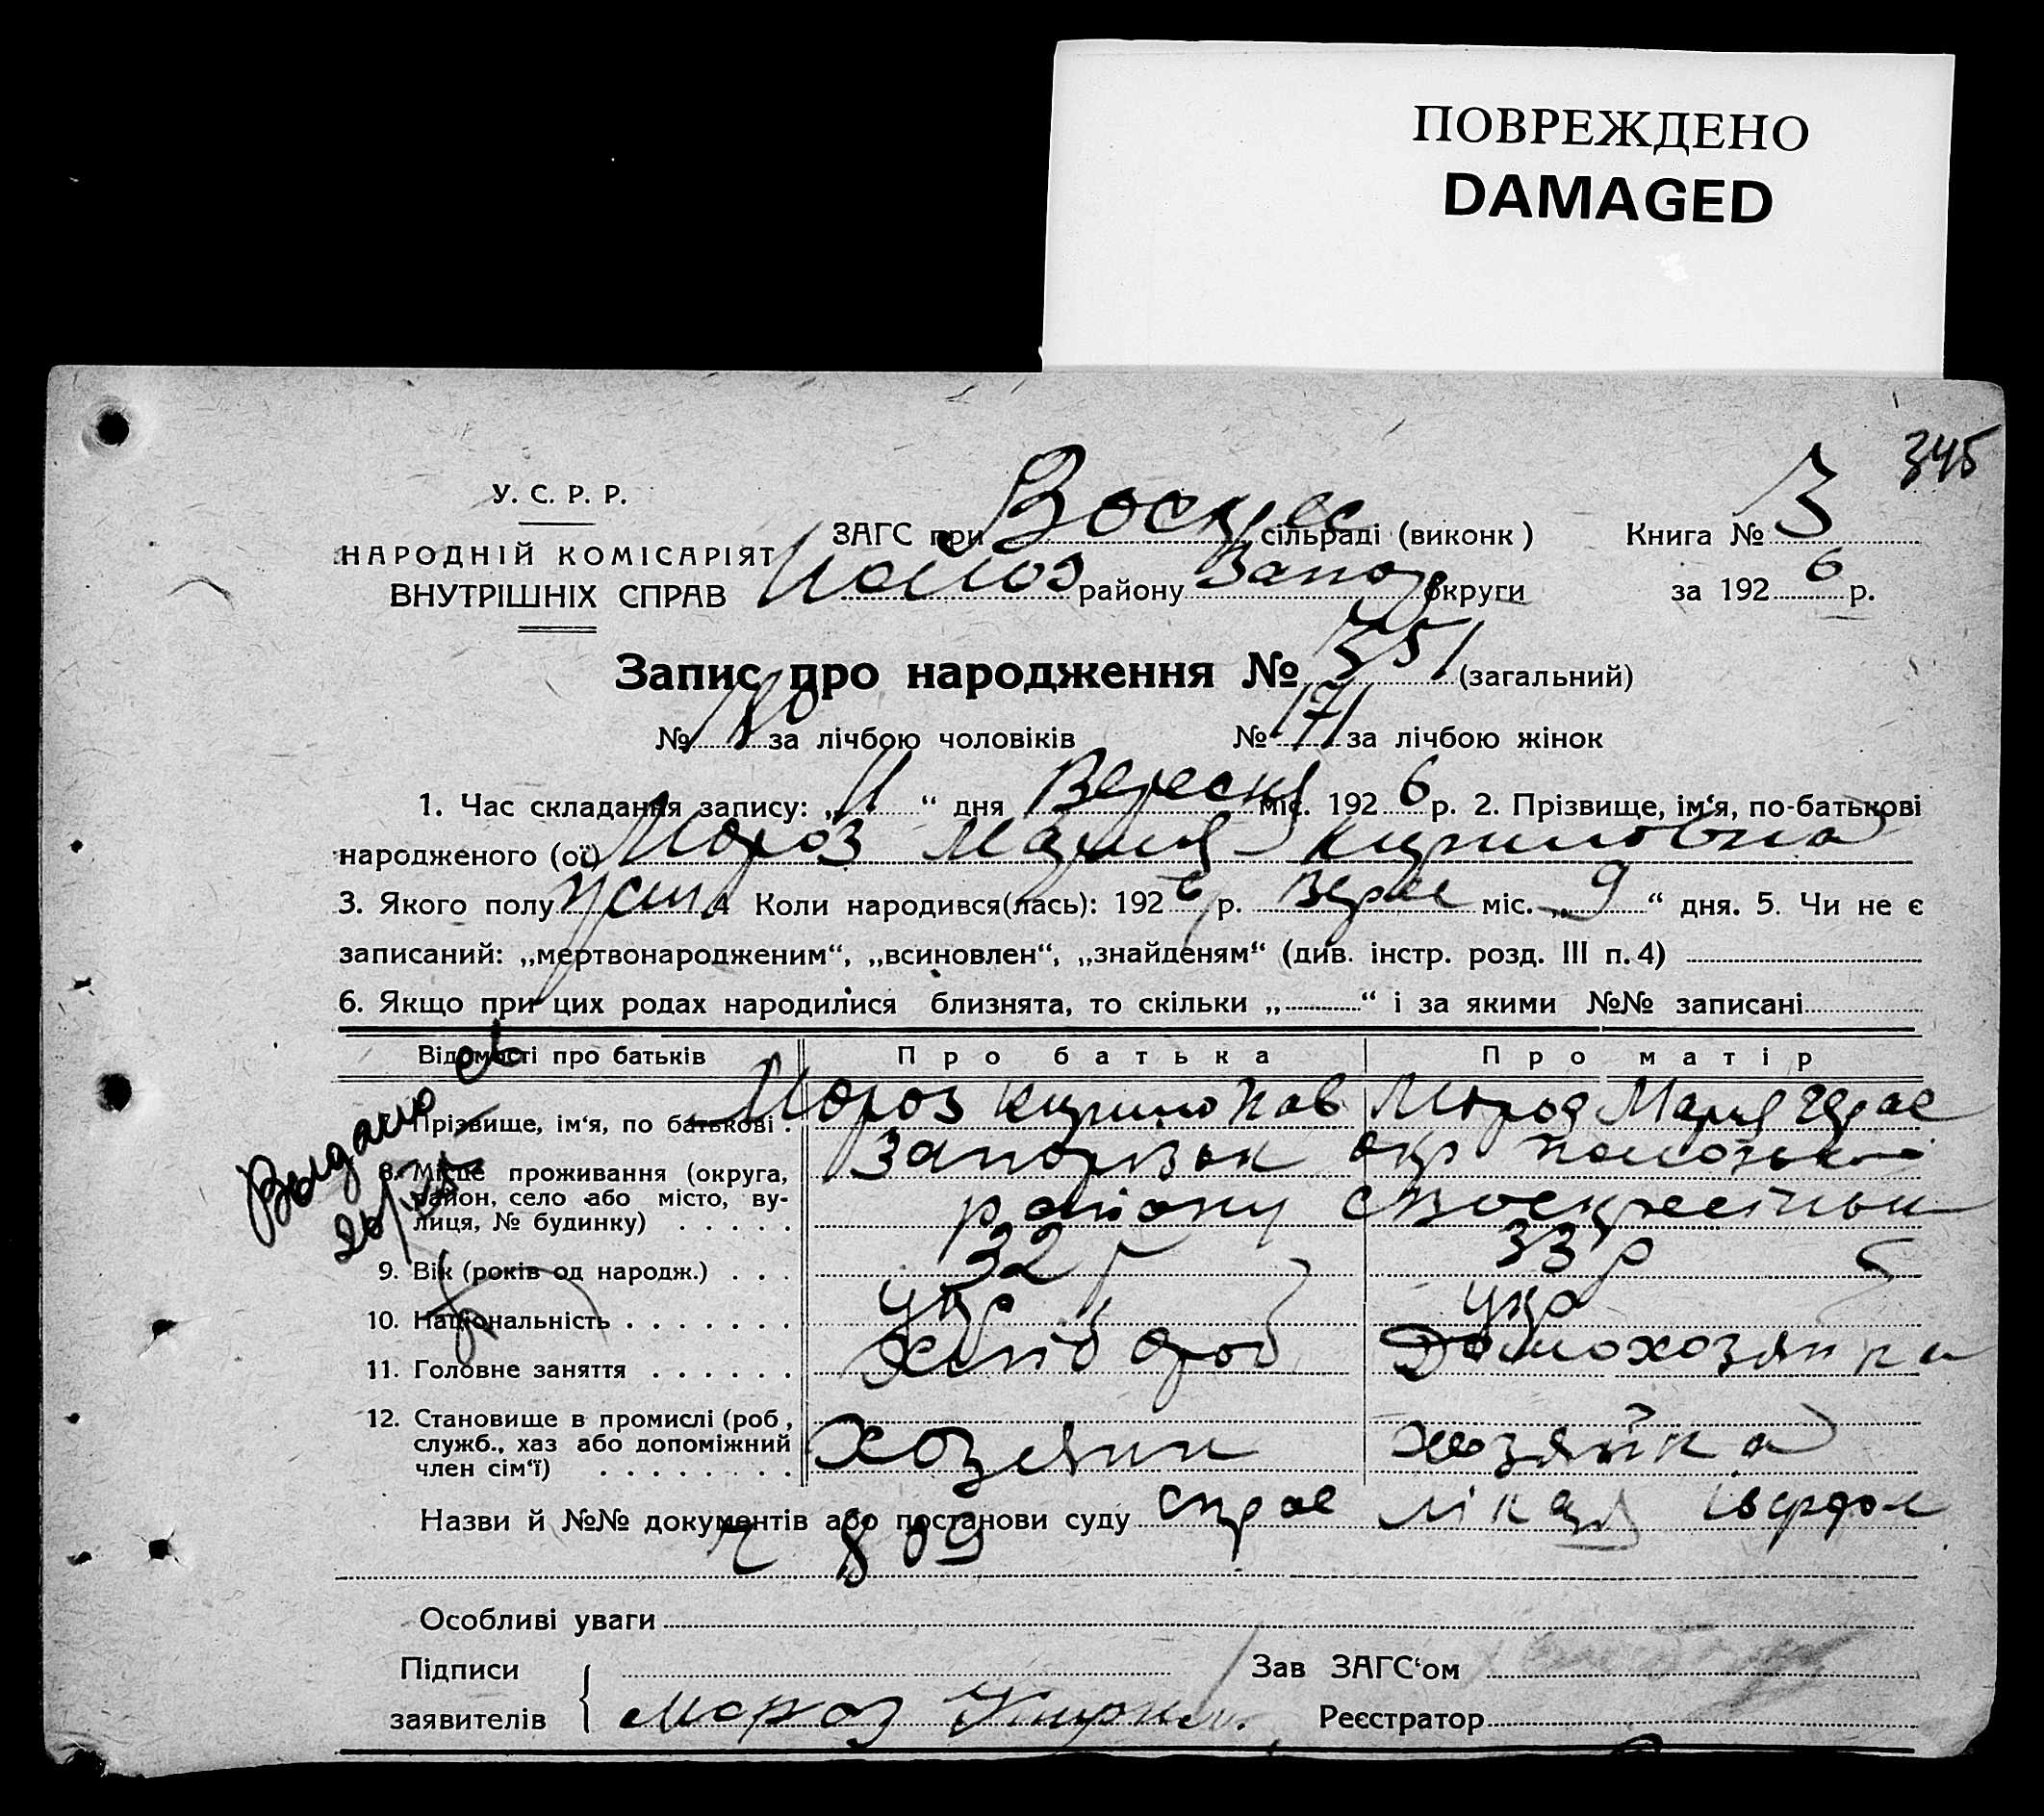 ПОВРЕЖДЕНО
DAMAGED
345
У. С. Р. Р.
НАРОДНІЙ КОМІСАРІЯТ
ВНУТРІШНІХ СПРАВ
ЗАГС при Воскрес сільраді (виконк)
району Запор округи
Книга № 3
за 1926 р.
Запис про народження № 351 (загальний)
№ 180 за лічбою чоловіків № 171 за лічбою жінок
1. Час складання запису: „11“ дня Вересня міс. 1926 р. 2. Прізвище, ім‘я, по-батькові
народженого (ої) Мороз Мария Кириловна
3. Якого полу жін 4 Коли народився(лась): 1926 р. Верес міс. „9“ дня. 5. Чи не є
записаний: „мертвонародженим“, „всиновлен“, „знайденям“ (див. інстр. розд. III п. 4)
6. Якщо при цих родах народилися близнята, то скільки „ “ і за якими №№ записані
Відомості про батьків Про батька Про матір
Прізвище, ім‘я, по батькові . Мороз Кирило Пав Мороз Мария
8. Місце проживання (округа, Запорізьк окр Пологовск
район, село або місто, ву- району с Воскресінки
лиця, № будинку) . . . . .
9. Вік (років од народж.) . . . 32 р 33 р
10. Національність . . . . . . . укр укр
11. Головне заняття . . . . . . Хліб Домохозяйка
12. Становище в промислі (роб,
служб., хаз або допоміжний Хозяин хозяйка
член сім‘ї) . . . . . . . .
Выдано св
26/
Назви й №№ документів або постанови суду справ лікаря
809
Особливі уваги
Підписи
заявителів Мороз Кирил.
Зав ЗАГС‘ом
Реєстратор